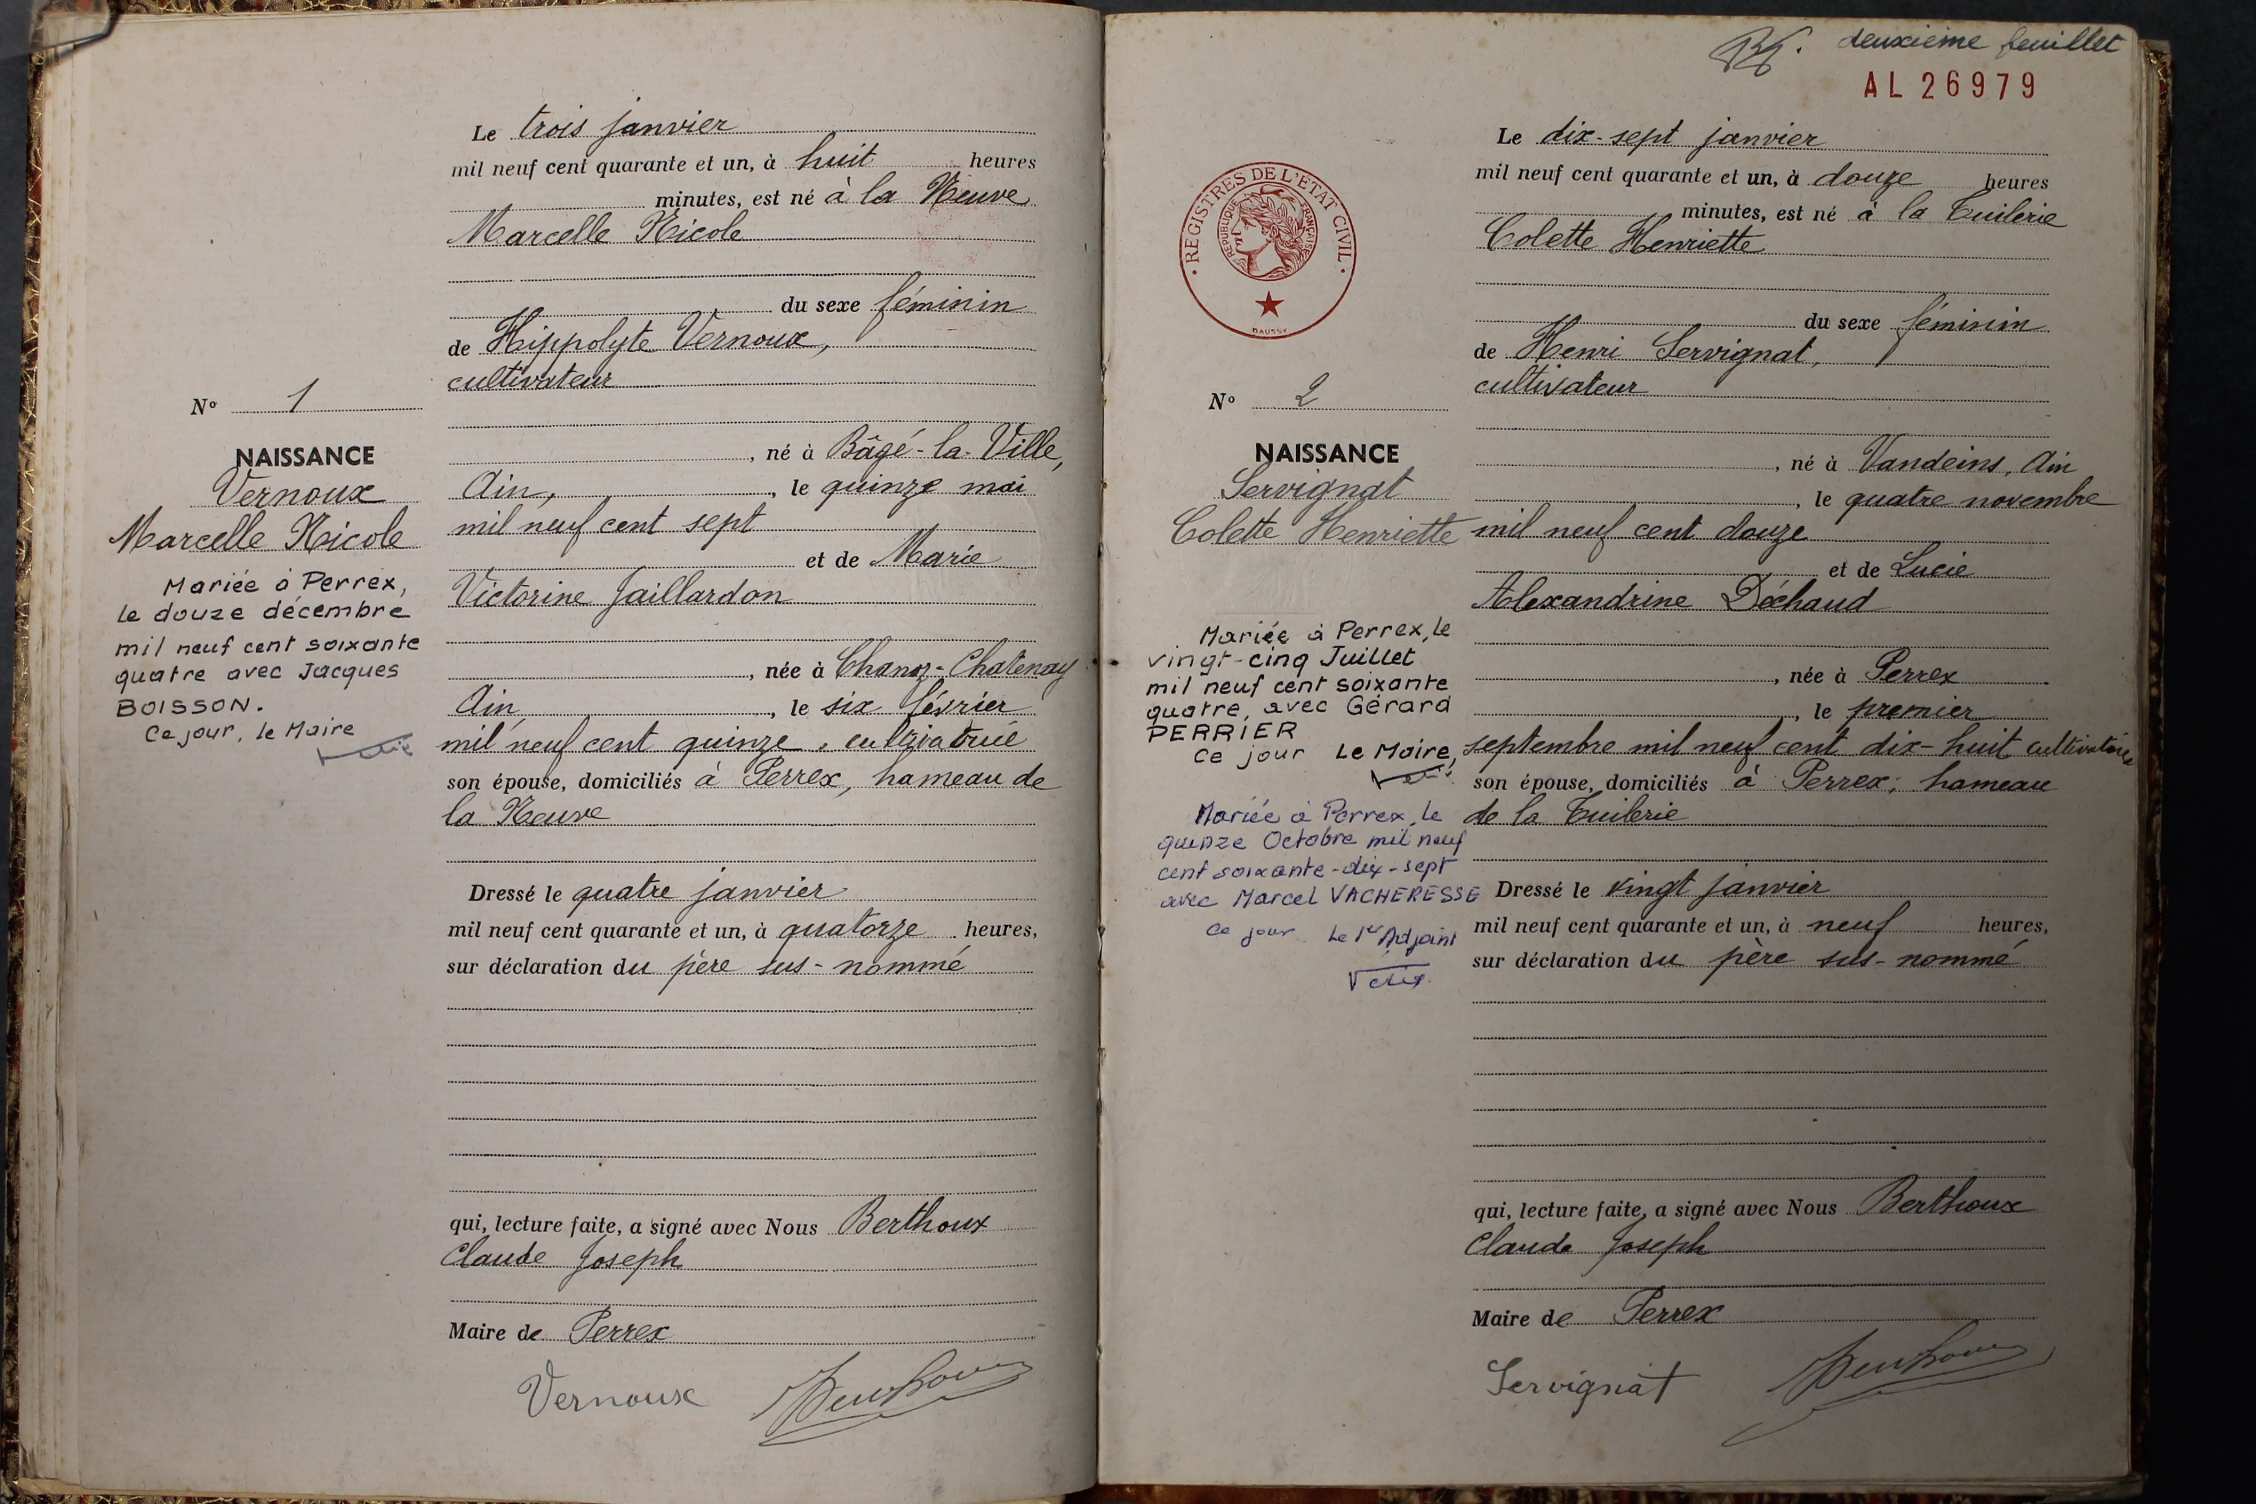 Le trois janvier
mil neuf cent quarante et un, à huit heures
minutes, est né à la Neuve
Marcelle Nicole
du sexe féminin
de Hippolyte Vernoux,
cultivateur
N° 1
NAISSANCE
Vernoux
Marcelle Nicole
Mariée à Perrex,
le douze décembre
mil neuf cent soixante
quatre avec Jacques
BOISSON.
Ce jour, le Maire
, né à Bâgé-la-Ville,
Ain, , le quinze mai
mil neuf cent sept
et de Marie
Victorine Jaillardon
, née à Chanoz-Chatenay
Ain , le six février
mil neuf cent quinze, cultivatrice
son épouse, domiciliés à Perrex, hameau de
la Neuve
Dressé le quatre janvier
mil neuf cent quarante et un, à quatorze heures,
sur déclaration du père sus-nommé
qui, lecture faite, a signé avec Nous Berthoux
Claude Joseph
Maire de Perrex
Vernoux
deuxième feuillet
AL 26979
REGISTRES DE L'ETAT CIVIL
REPUBLIQUE FRANÇAISE
DAUSSY
Le dix-sept janvier
mil neuf cent quarante et un, à douze heures
minutes, est né à la Tuilerie
Colette Henriette
du sexe féminin
de Henri Servignat,
cultivateur
N° 2
NAISSANCE
Servignat
Colette Henriette
Mariée à Perrex, le
vingt-cinq Juillet
mil neuf cent soixante
quatre, avec Gérard
PERRIER
Ce jour Le Maire,
Mariée à Perrex, le
quinze Octobre mil neuf
cent soixante-dix-sept
avec Marcel VACHERESSE
Ce jour Le 1er Adjoint
, né à Vandeins, Ain
, le quatre novembre
mil neuf cent douze
et de Lucie
Alexandrine Déchaud
, née à Perrex
, le premier
septembre mil neuf cent dix-huit cultivatrice
son épouse, domiciliés à Perrex, hameau
de la Tuilerie
Dressé le vingt janvier
mil neuf cent quarante et un, à neuf heures,
sur déclaration du père sus-nommé
qui, lecture faite, a signé avec Nous Berthoux
Claude Joseph
Maire de Perrex
Servignat